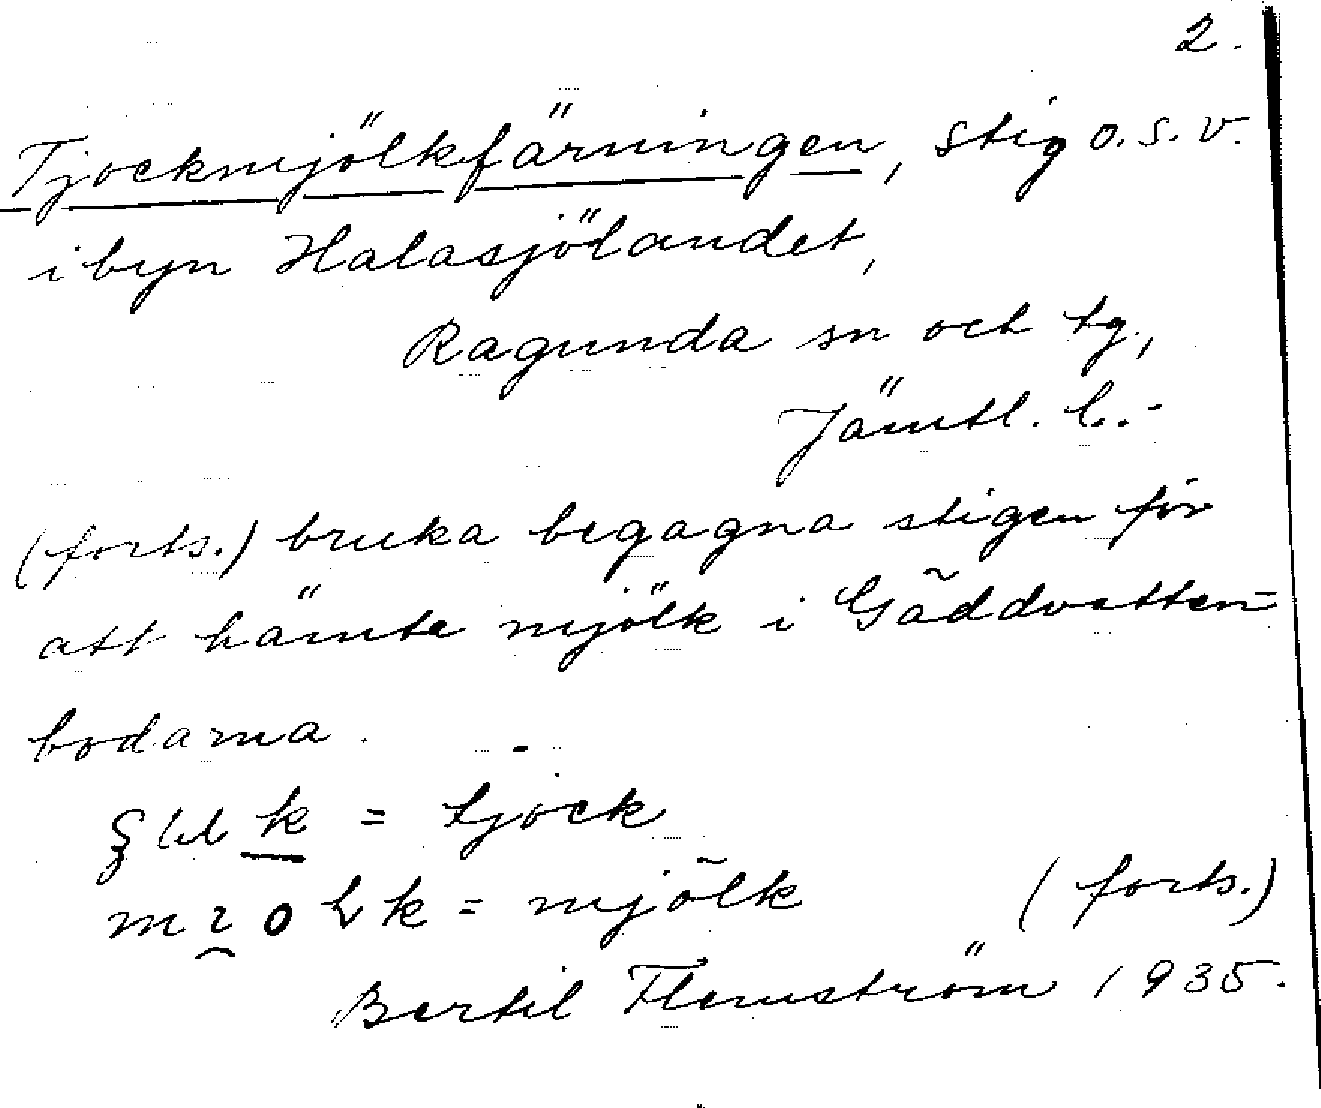 2.
Tjockmjölkfärningen, stig o.s.v.
i byn Halasjölandet,
Ragunda sn och tg.,
Jämtl. l..-
(forts.) bruka begagna stigen för
att hämta mjölk i Gäddvatten=
bodarna.
k = tjock
k = mjölk (forts.)
Bertil Flemström 1935.